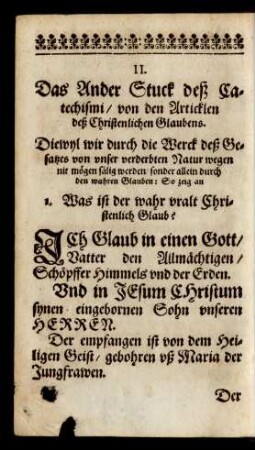 II.
Das Ander Stuck deß Ca-
techismi / von den Articklen
deß Christenlichen Glaubens.
Diewyl wir durch die Werck deß Ge-
satzes von vnser verderbten Natur wegen
nit mögen sälig werden sonder allein durch
den wahren Glauben: So zeig an
1. Was ist der wahr vralt Chri-
stenlich Glaub?
ICh Glaub in einen Gott /
Vatter den Allmächtigen /
Schöpffer Himmels vnd der Erden.
Vnd in JEsum CHristum
synen eingebornen Sohn vnseren
HERREN.
Der empfangen ist von dem Hei-
ligen Geist / gebohren vß Maria der
Jungfrawen.
Der